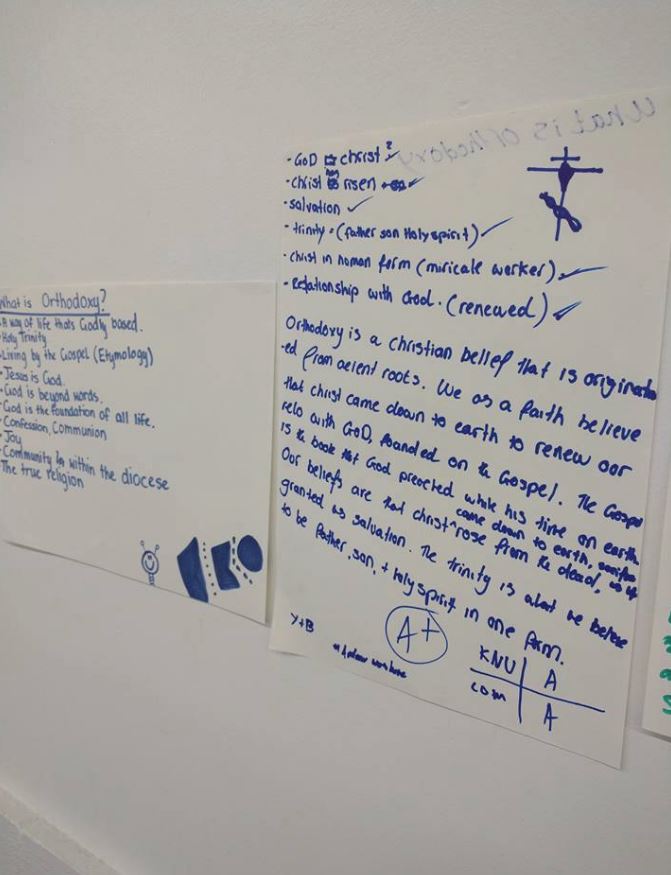 What is Orthodoxy?
A way of life thats Godly based.
Holy Trinity
Living by the Gospel (Etymology)
Jesus is God.
God is beyond words.
God is the foundation of all life.
Confession, Communion
Joy
Community within the diocese
The true religion
What is orthodoxy
- GOD christ?
- christ risen
- salvation
- trinity = (father son Holy spirit)
- christ in homan form (miricale worker)
- Relationship with God. (renewed)
Orthodoxy is a christian belief that is originate
-ed from acient roots. We as a faith believe
that christ came down to earth to renew oor
relo with GOD, foanded on the Gospel. The Gospel
is the book that God preected while his time on earth.
Oor beliefs are that christ come down to earth, rose from the dead,
granted us salvation. The trinity is what we believe
to be father, son, + holy spirit in one form.
Y+B
A+
KNU A
com A